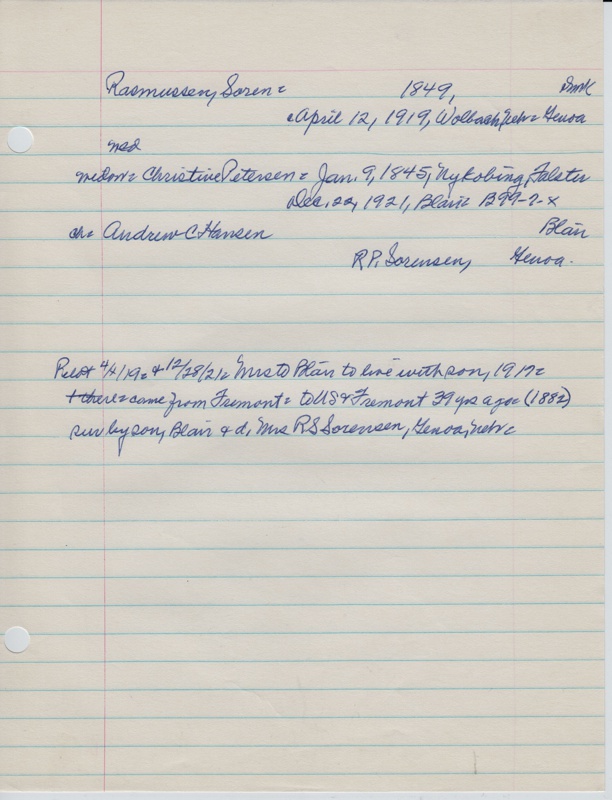 Rasmussen, Soren = 1849, Dmk
April 12, 1919, Wolbach, Nebr = Genoa
md
widow = Christine Petersen = Jan. 9, 1845, Nykobing, Falster
Dec. 22, 1921, Blair = B99-2-x
ch = Andrew C Hansen Blair
R P. Sorensen, Genoa.
Pilot 4/4/19 = & 12/28/21 = Mrs to Blair to live with son, 1917 =
+ there = came from Fremont = to US & Fremont 39 yrs ago = (1882)
sur by son, Blair & d, Mrs R S Sorensen, Genoa, Nebr =